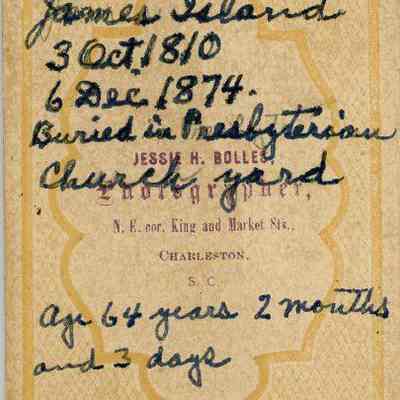 James Island
3 Oct. 1810
6 Dec. 1874.
Buried in Presbyterian
JESSIE H. BOLLES,
Church yard
Photographer,
N. E. cor. King and Market Sts.,
CHARLESTON,
S. C.
Age 64 years 2 months
and 3 days